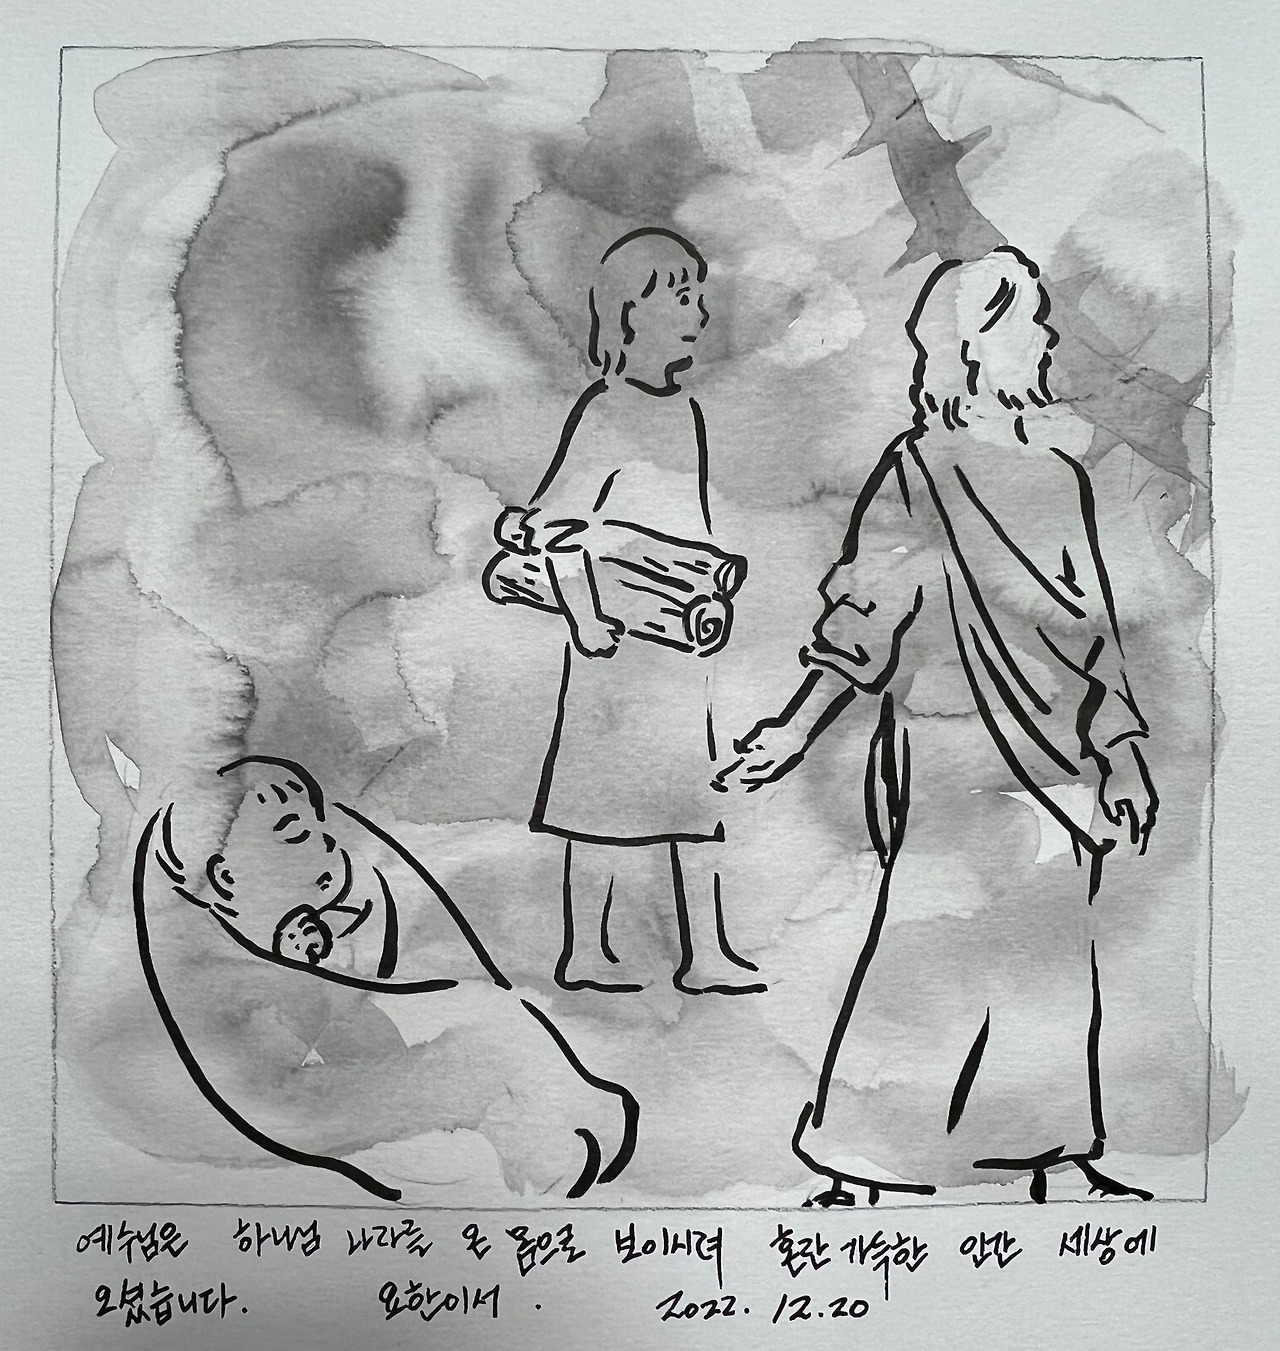 예수님은 하나님 나라를 온 몸으로 보이시려 혼란 가득한 인간 세상에
오셨습니다. 요한이서. 2022. 12.20